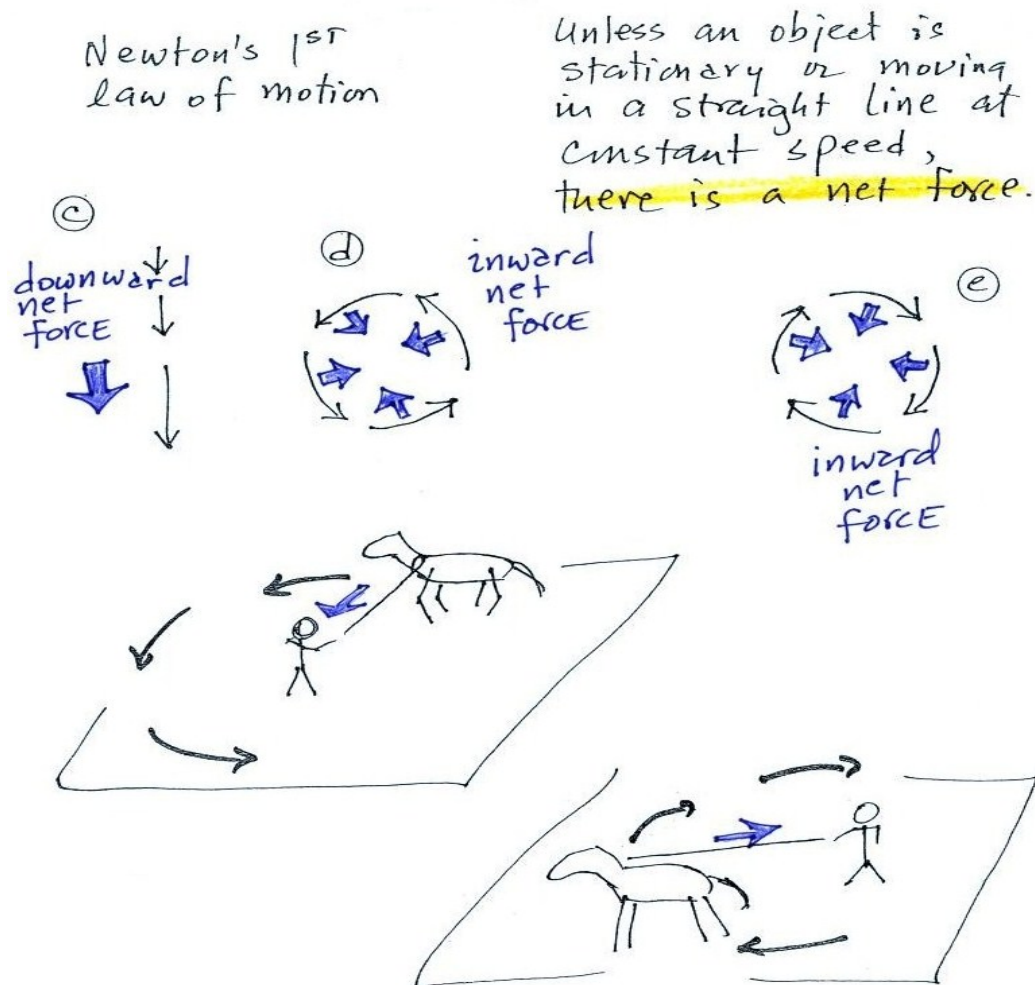 Newton's 1ST
law of motion
Unless an object is
stationary or moving
in a straight line at
constant speed,
there is a net force.
c
downward
net
force
d
inward
net
force
e
inward
net
force